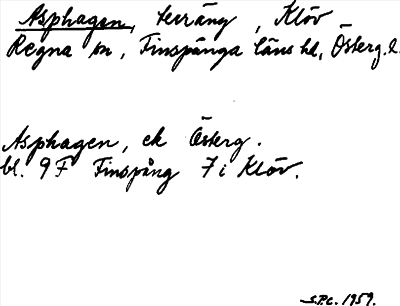 Asphagen, terräng, Klöv
Regna sn, Finspånga läns hd, Österg. l.
Asphagen, ek Österg.
bl. 9 F Finspång 7 i Klöv.
S.P.C. 1959.